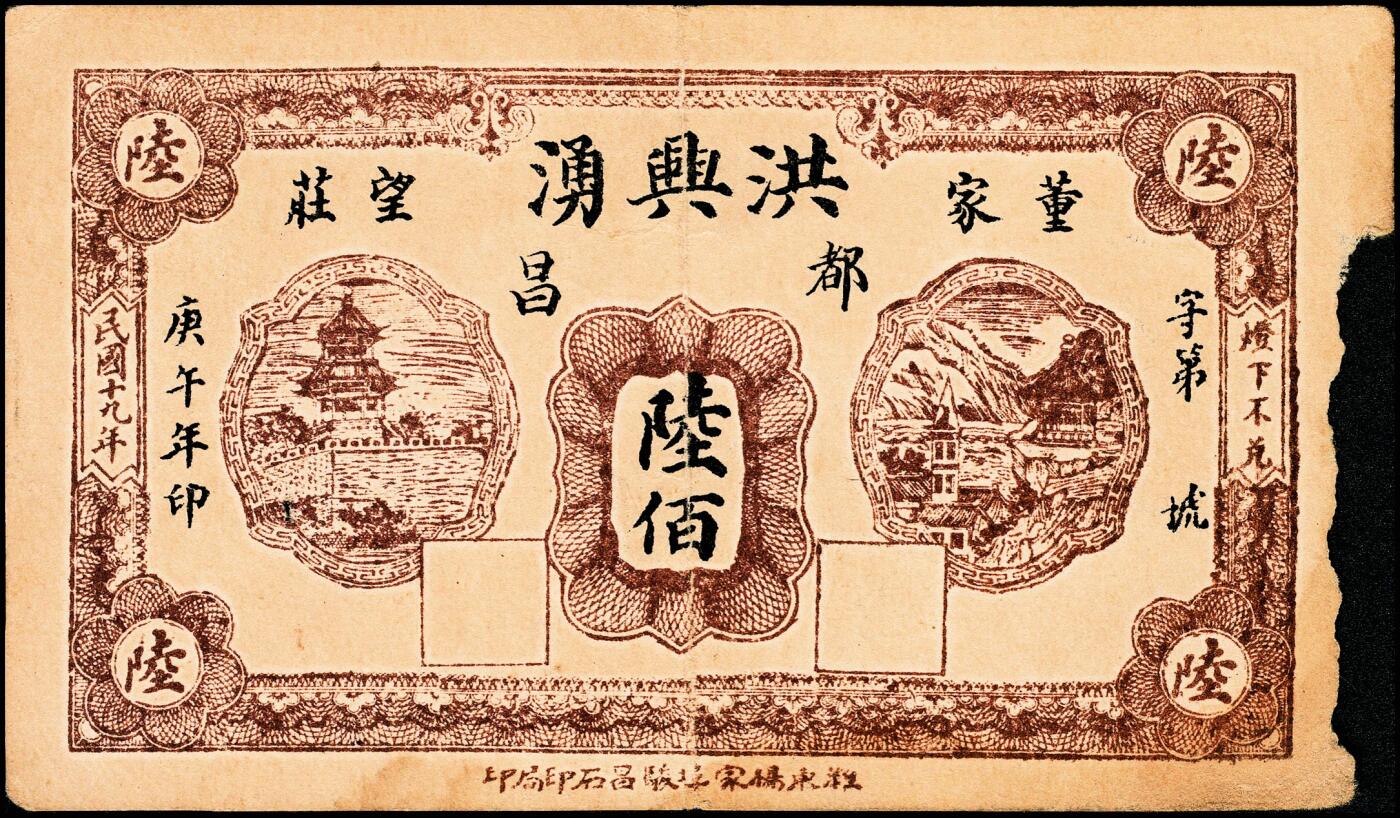 陸
陸
洪興湧
董家
望莊
都
昌
字第 號
燈下不兌
陸佰
庚午年印
民國十九年
陸
陸
濰東楊家埠駿昌石印局印